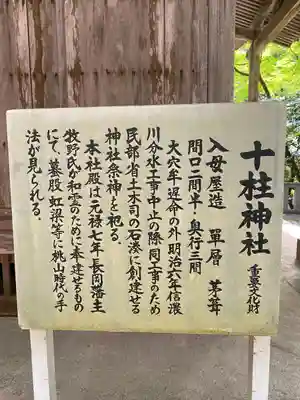 十柱神社 重要文化財
入母屋造 單層 茅葺
間口二間半・奥行三間
大穴牟遅命の外明治六年信濃
川分水工事中止の際同工事のため
民部省土木司の石港に創建せる
神社祭神を祀る。
本社殿は元禄七年長岡藩主
牧野氏が和霊のために奉建せるもの
にて、蟇股、虹梁等に桃山時代の手
法が見られる。